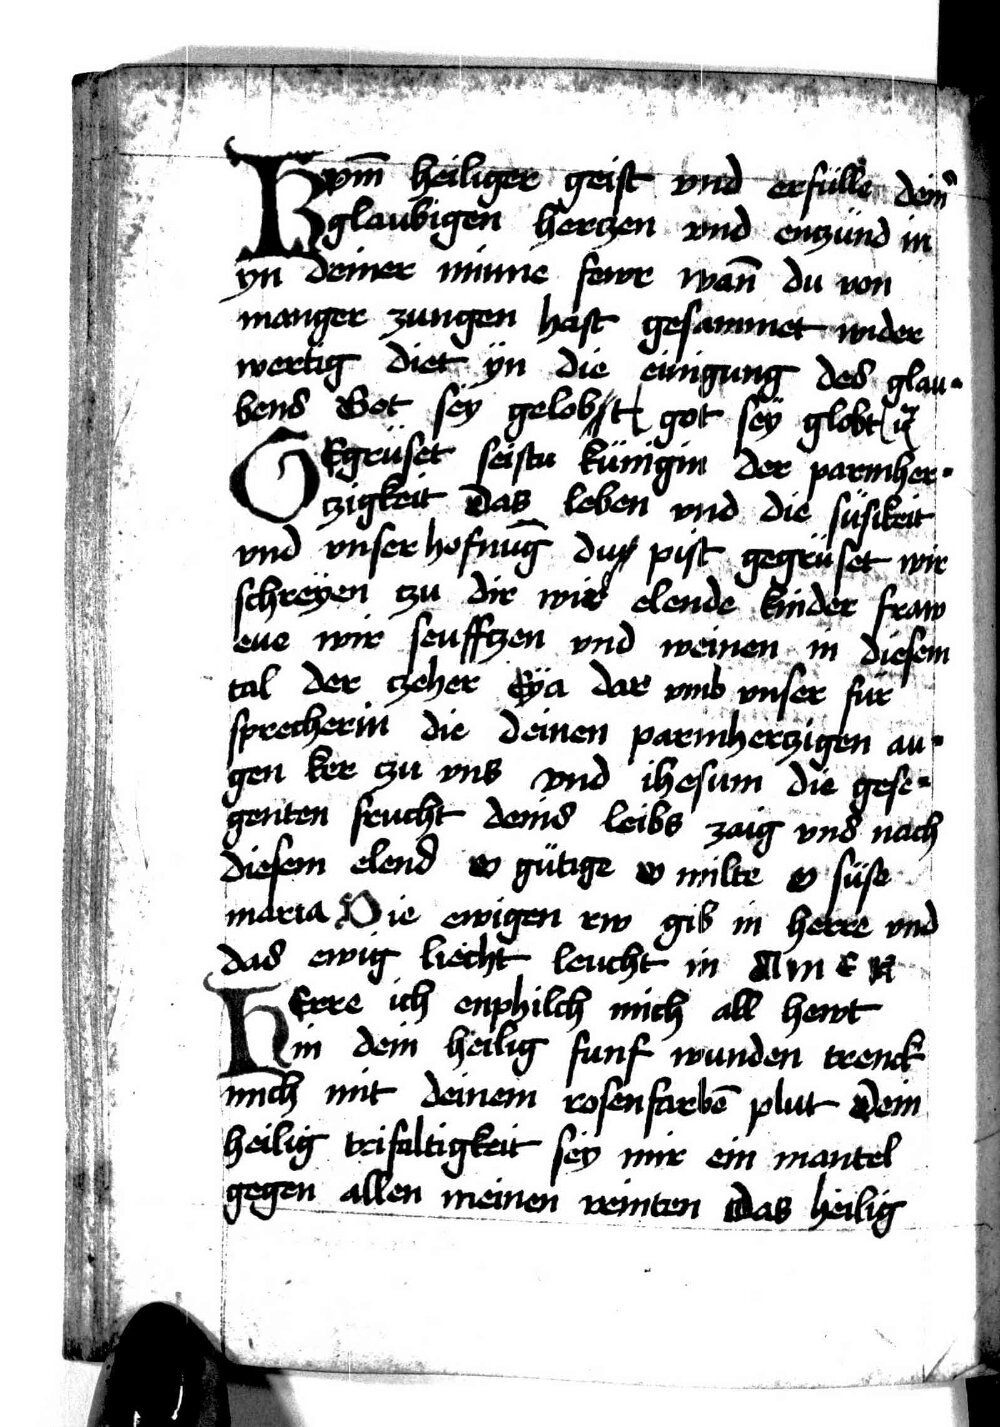 Kym̄ heiliger geist vnd erfülle dein͛
glaubigen hertzen vnd entzünd in
yn deiner minne fewr wan̄ du von
manger zungen hast gesammet wider
wertig diet ÿn die einigung des glau-
bens Got seÿ gelobst got seÿ globt
GEgrüset seistu künigin der parmher-
tzigkeit das leben vnd die süsikeit
vnd vnser hofnūg du pist gegrüset wir
schreÿen tzu dir wir elende kinder fraw
eue wir seufftzen vnd weinen in diesem
tal der tzeher Eÿa dar vmb vnser für
sprecherin die deinen parmhertzigen au-
gen ker tzu vns vnd ihesum die gese-
genten frucht deins leibs zaig vns nach
diesem elend o gütige o milte o süse
maria Die ewigen rw gib in herre vnd
das ewig liecht leucht in AMEN
HErre ich enphilch mich all hewt
in dein heilig funf wunden trenck
mich mit deinem rosenfarbē plut Dein
heilig trifaltigkeit seÿ mir ein mantel
gegen allen meinen veinten Das heilig